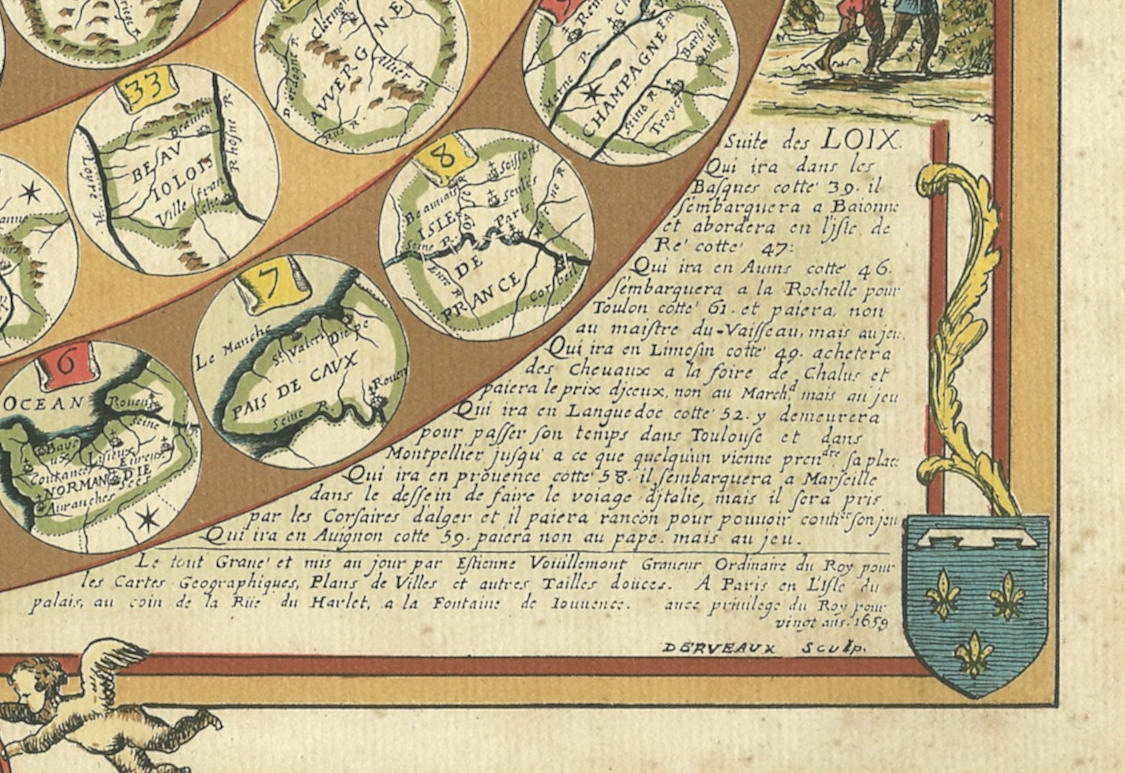 AVVERGNE
Clermo
Allier
33
BEAV
IOLOIS
Beauieu
Loyre R.
Rhosne R.
Ville fran
che
CHAMPAGNE
Marne R.
Seine R.
Troye
Bar
Aube
8
ISLE
DE
FRANCE
Beauuais
Soissons
Senlis
Pari
Seine R.
Eure R.
Corbeil
7
Le Manche
St. Valeri
Dieppe
PAIS DE CAVX
Rouen
Seine R
6
OCEAN
Rouen
Seine
Baye
ux
Lisieux
Eureux
Coutance
NORMAN
DIE
Auranches
Suite des LOIX.
Qui ira dans les
Basques cotte' 39. il
s'embarquera a Baionne
et abordera en l'jsle de
Re' cotte' 47:
Qui ira en Aunis cotte' 46.
s'embarquera a la Rochelle pour
Toulon cotte' 61. et paiera, non
au maistre du-Vaisseau, mais au jeu.
Qui ira en Limosin cotte' 49. achetera
des Cheuaux a la foire de Chalus et
paiera le prix djceux, non au March.d mais au jeu
Qui ira en Languedoc cotte' 52. y demeurera
pour passer son temps dans Toulouse et dans
Montpellier jusqu' a ce que quelqu'un vienne prendre sa plac
Qui ira en prouence cotte' 58. il s'embarquera a Marseille
dans le dessein de faire le voiage djtalie, mais il sera pris
par les Corsaires d'alger et il paiera rancon pour pouuoir contir son jeu
Qui ira en Auignon cotte' 59. paiera non au pape. mais au jeu.
Le tout Graue' et mis au jour par Estienne Voüillemont Graueur Ordinaire du Roy pour
les Cartes Geographiques, Plans de Villes et autres Tailles douces. A Paris en L'Isle du
palais, au coin de la Rüe du Harlet, a la Fontaine de Iouuence. auec priuilege du Roy pour
vingt ans. 1659
DERVEAUX Sculp.